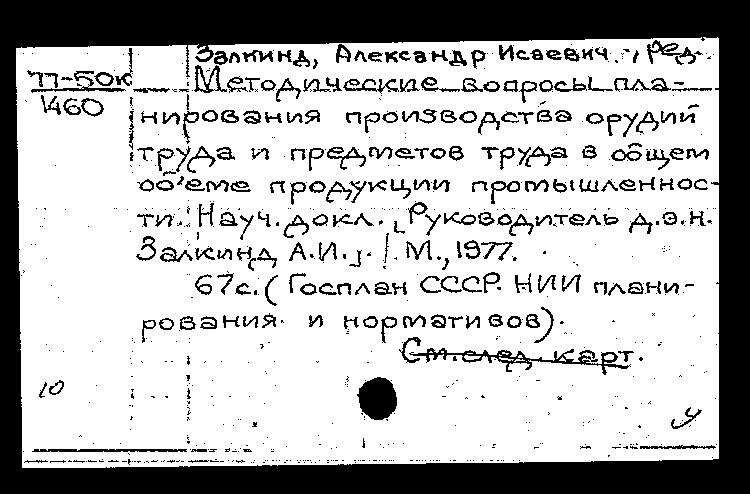 Залкинд, Александр Исаевич., ред.
77-50к Методические вопросы пла-
1460
нирования производства орудий
труда и предметов труда в общем
об'еме продукции промышленнос-
ти. Науч. докл. [Руководитель д.э.н.
Залкинд А.И.]. М., 1977.
67с. (Госплан СССР. НИИ плани-
рования и нормативов).
См. след. карт.
10
У